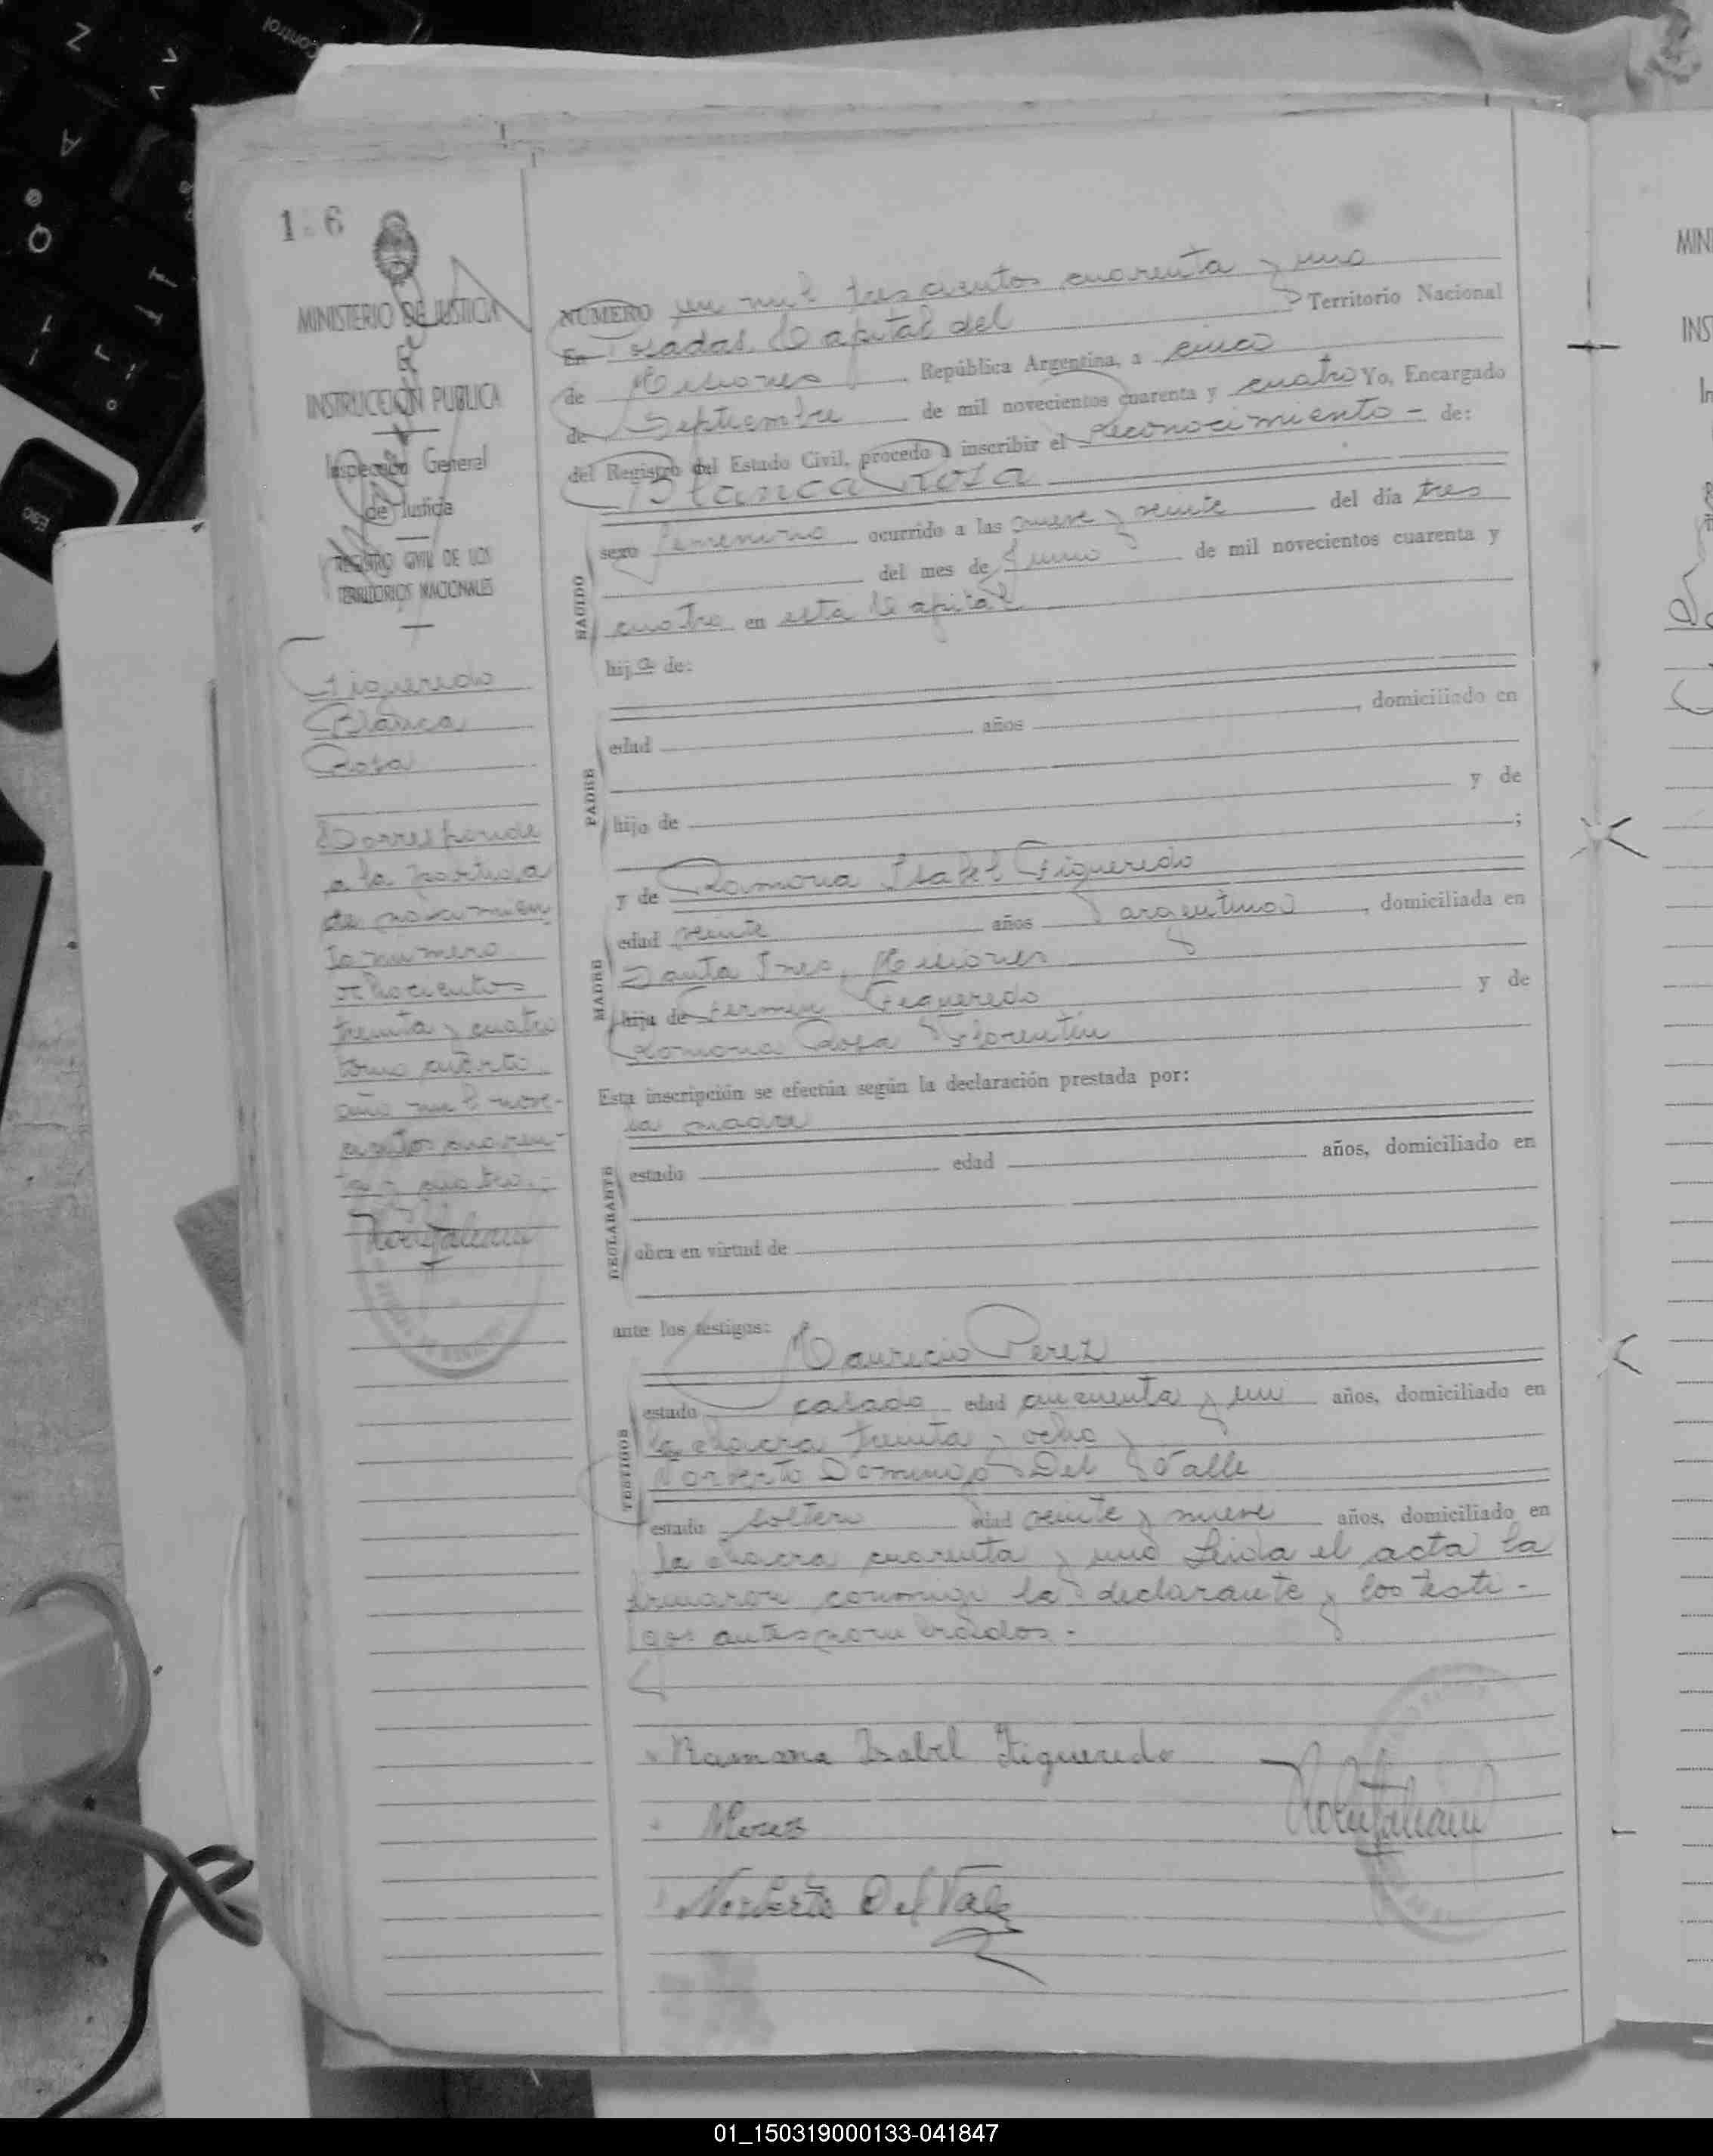 1 6
MINISTERIO DE JUSTICIA
E
INSTRUCCION PUBLICA
Inspección General
de Justicia
REGISTRO CIVIL DE LOS
TERRITORIOS NACIONALES
Figueredo
Blanca
Rosa
Corresponde
a la partida
de nacimien
to numero
ochocientos
treinta y cuatro
tomo cuarto
año mil nove-
cientos cuaren-
ta y cuatro.-
NUMERO un mil trescientos cuarenta y uno
En Posadas, Capital del Territorio Nacional
de Misiones, República Argentina, a cinco
de Septiembre de mil novecientos cuarenta y cuatro Yo, Encargado
del Registro del Estado Civil, procedo a inscribir el Reconocimiento - de:
Blanca Rosa
NACIDO
sexo femenino ocurrido a las nueve y veinte del día tres
del mes de Junio de mil novecientos cuarenta y
cuatro en esta Capital
hija de:
PADRE
edad años , domiciliado en
hijo de y de
;
MADRE
y de Ramona Isabel Figueredo
edad veinte años argentina, domiciliada en
Santa Ines, Misiones
hija de Fermin Figueredo y de
Ramona Rosa Florentin
Esta inscripción se efectúa según la declaración prestada por:
la madre
DECLARANTE
estado edad años, domiciliado en
obra en virtud de
ante los testigos:
Mauricio Perez
TESTIGOS
estado casado edad cincuenta y un años, domiciliado en
la chacra treinta y ocho y
Norberto Domingo Del Valle
estado soltero edad veinte y nueve años, domiciliado en
la chacra cuarenta y uno Leida el acta la
firmaron conmigo la declarante y los testi-
gos antes nombrados.-
Ramona Isabel Figueredo
MPerez
Norberto Del Valle
MIN
INS
01_150319000133-041847